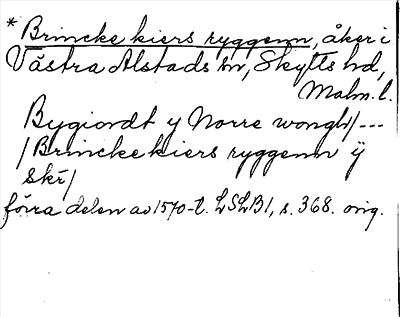 * Brincke kiers ryggenn, åker i
Västra Alstads sn, Skytts hd,
Malm. l.
Bygiordt y Norre wongh/---
/Brincke kiers ryggenn ÿ
skr/
förra delen av 1570-t. LSLB1, s. 368. orig.